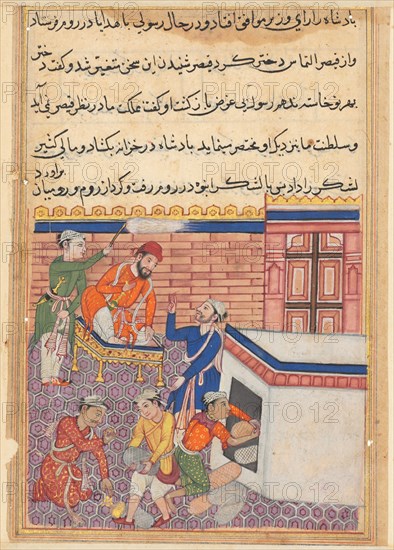 پادشاه را رای وزیر موافق افتاد و در حال رسولی با هدایا در روم فرستاد
و از قیصر التماس دختر کرد قیصر شنیدن این سخن متغیر شد و گفت دختر
بهر نوخاسته ندهم رسول بی غرض باز کشت او گفت مملکت ما در نظر قیصر نمی آید
و سلطنت ما بنزدیک او مختصر مینماید پادشاه در خزانه بکشاد و مالی کثیر
لشکری را داد پس با لشکر انبوه در روم رفت و کرد از روم و رومیان
براورد
PHOTO 12